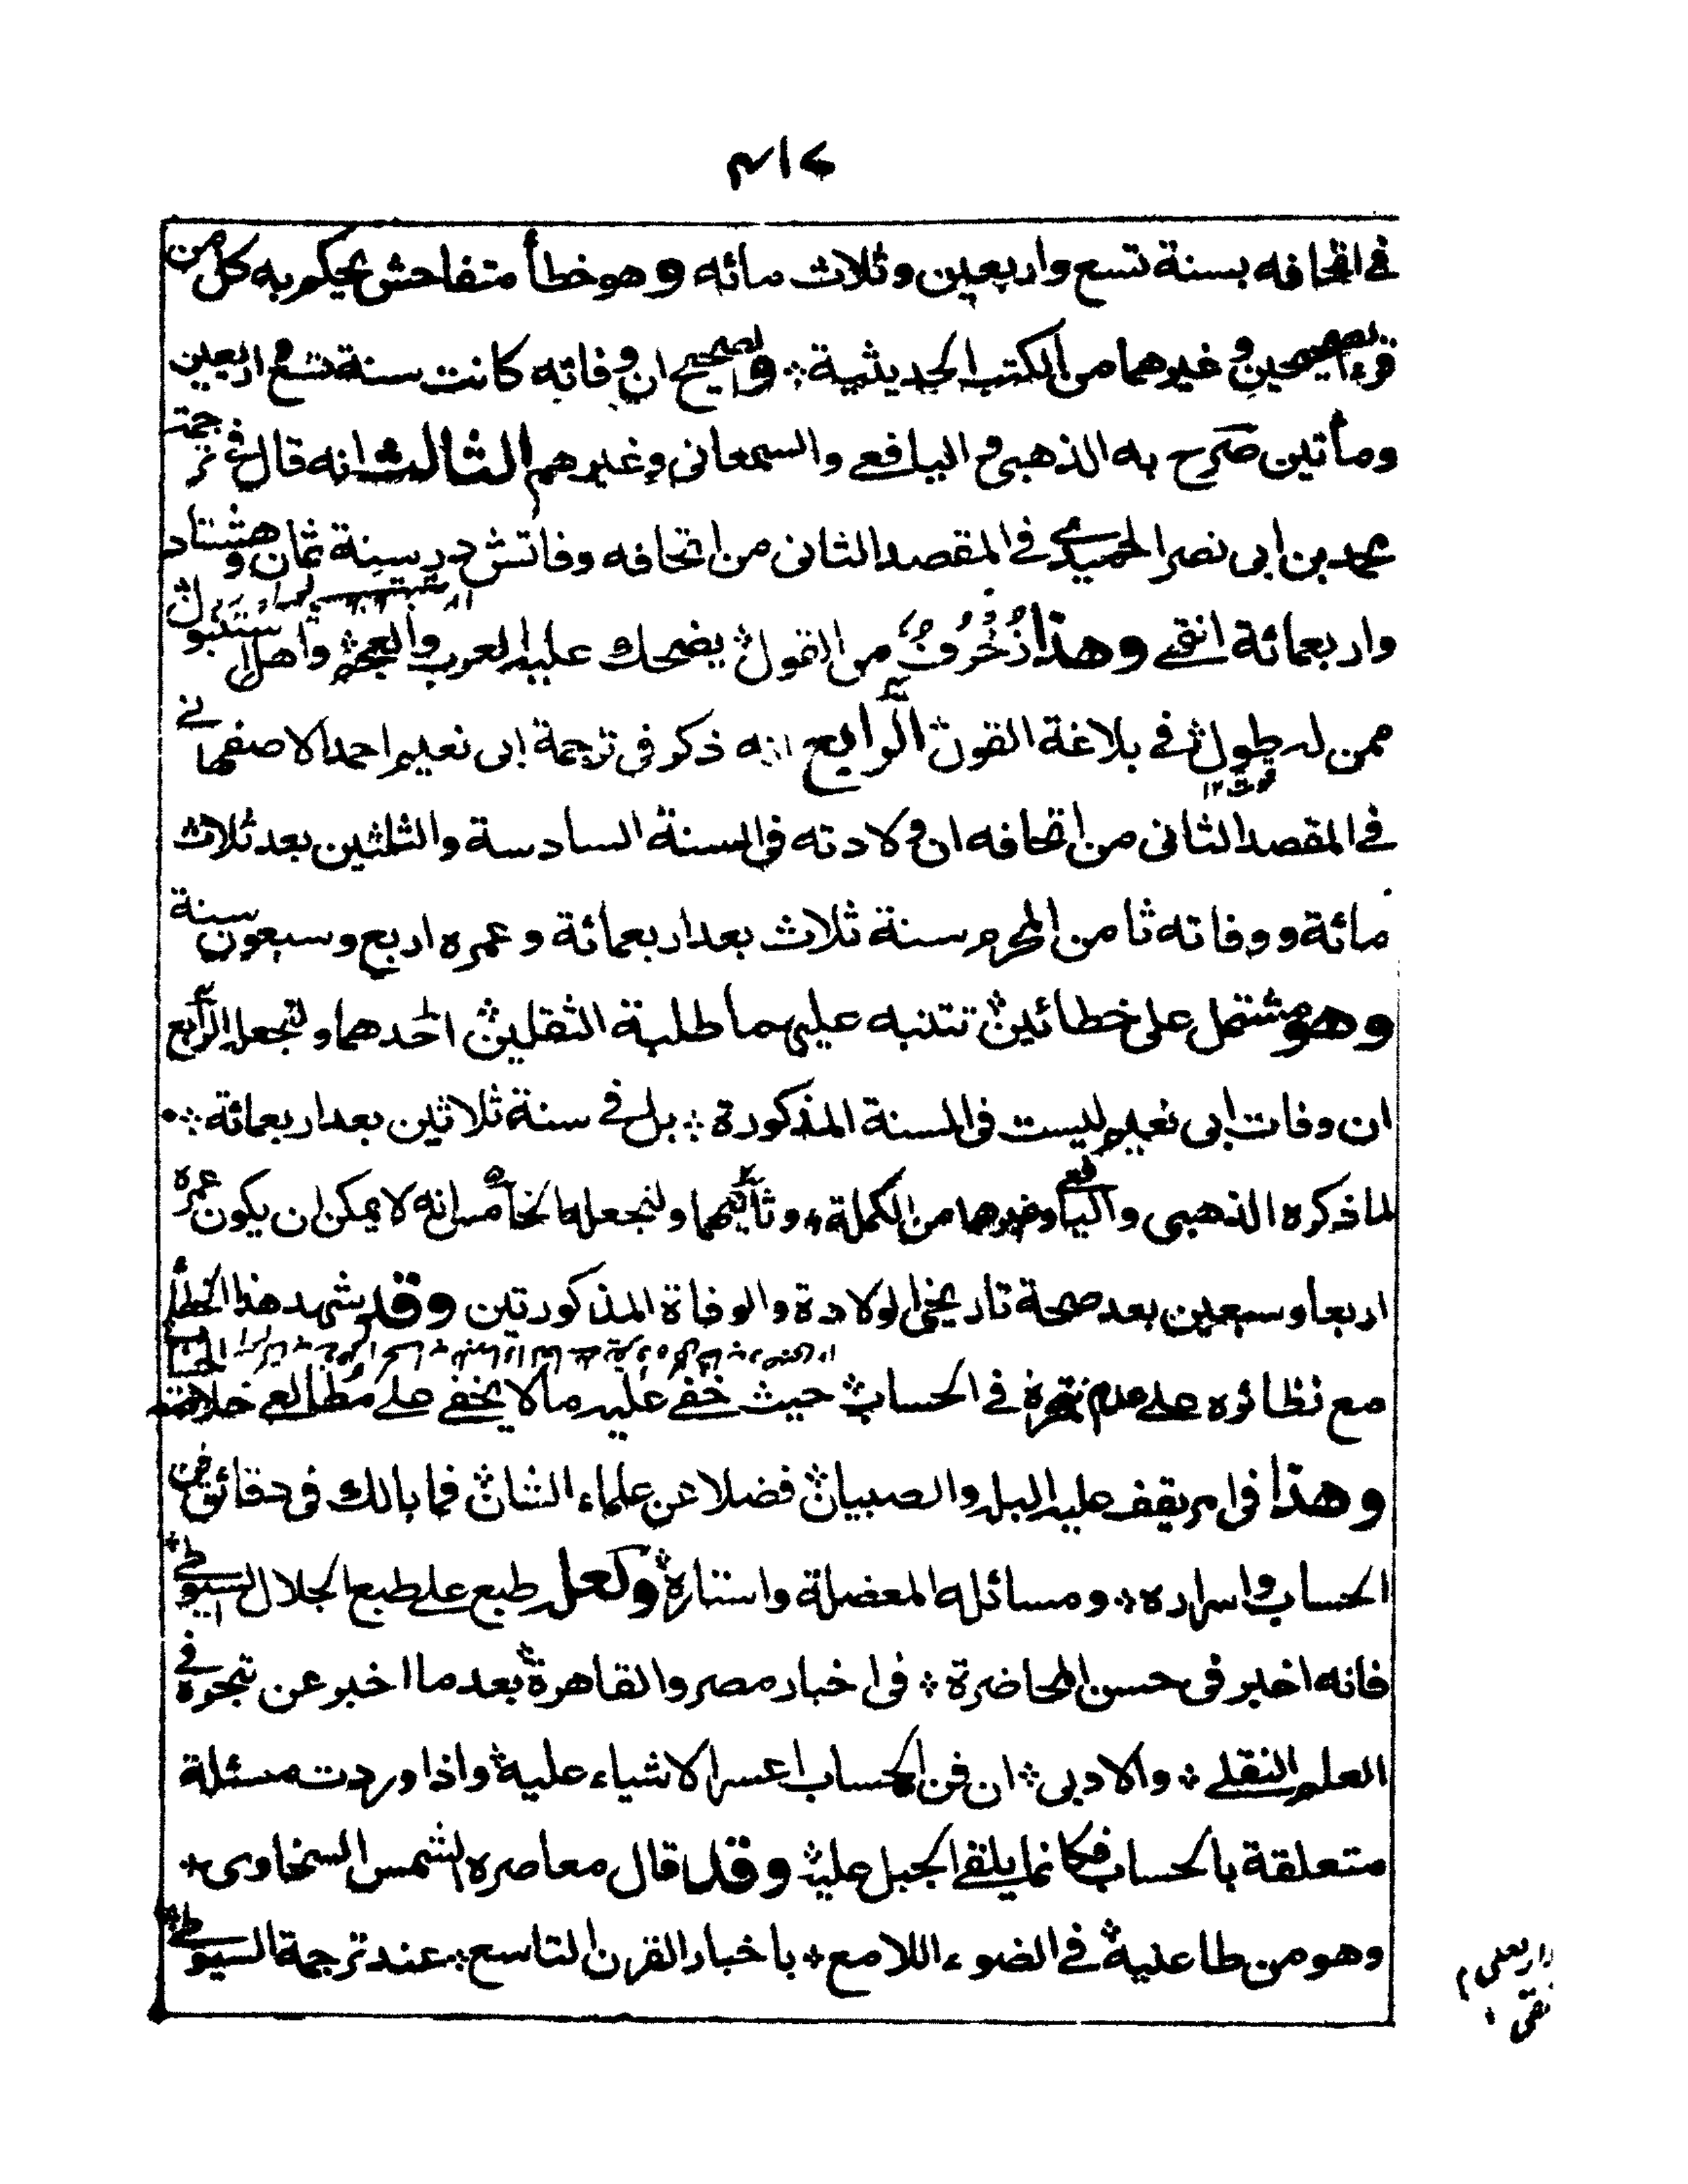 في اتحافه بسنة تسع واربعين وثلاث مائه وهو خطأ متفاحش يحكم به كل من
قرء الصحيحين وغيرهما من الكتب الحديثية والصحيح ان وفاته كانت سنة تسع واربعين
ومأتين صرح به الذهبي واليافعي والسمعاني وغيرهم الثالث انه قال في ترجمة
محمد بن ابي نصر الحميدي في المقصد الثاني من اتحافه وفاتش در سنة ثمان وهشتاد
واربعمائة انتهى وهذا زُخرفٌ من القول يضحك عليه العرب والعجم واهل استنبول
ممن له طول في بلاغة القول الرابع انه ذكر في ترجمة ابي نعيم احمد الاصفهاني
في المقصد الثاني من اتحافه ان ولادته في السنة السادسة والثلثين بعد ثلاث
مائة ووفاته ثامن المحرم سنة ثلاث بعد اربعمائة وعمره اربع وسبعون سنة
وهو مشتمل على خطائين تتنبه عليهما طلبة الثقلين احدهما ولنجعله الرابع
ان وفات ابي نعيم ليست في السنة المذكورة بل في سنة ثلاثين بعد اربعمائة
لما ذكره الذهبي واليافعي وغيرهما من الكملة وثانيهما ولنجعله الخامس انه لا يمكن ان يكون عمره
اربعا وسبعين بعد صحة تاريخي الولادة والوفاة المذكورتين وقد شهد هذا الخطأ
مع نظائره على عدم تبحره في الحساب حيث خفي عليه ما لا يخفى على مطالعي خلاصة الحساب
وهذا في امر يقف عليه البله والصبيان فضلا عن علماء الشان فما بالك في دقائق فن
الحساب واسراره ومسائله المعضلة واستاره ولعل طبع على طبع الجلال السيوطي
فانه اخبر في حسن المحاضرة في اخبار مصر والقاهرة بعد ما اخبر عن تبحره في
العلم النقلي والادبي ان فن الحساب اعسر الاشياء عليه واذا وردت مسئلة
متعلقة بالحساب فكانما يلقى الجبل عليه وقد قال معاصره الشمس السخاوي
وهو من طاعنيه في الضوء اللامع باخبار القرن التاسع عند ترجمة السيوطي